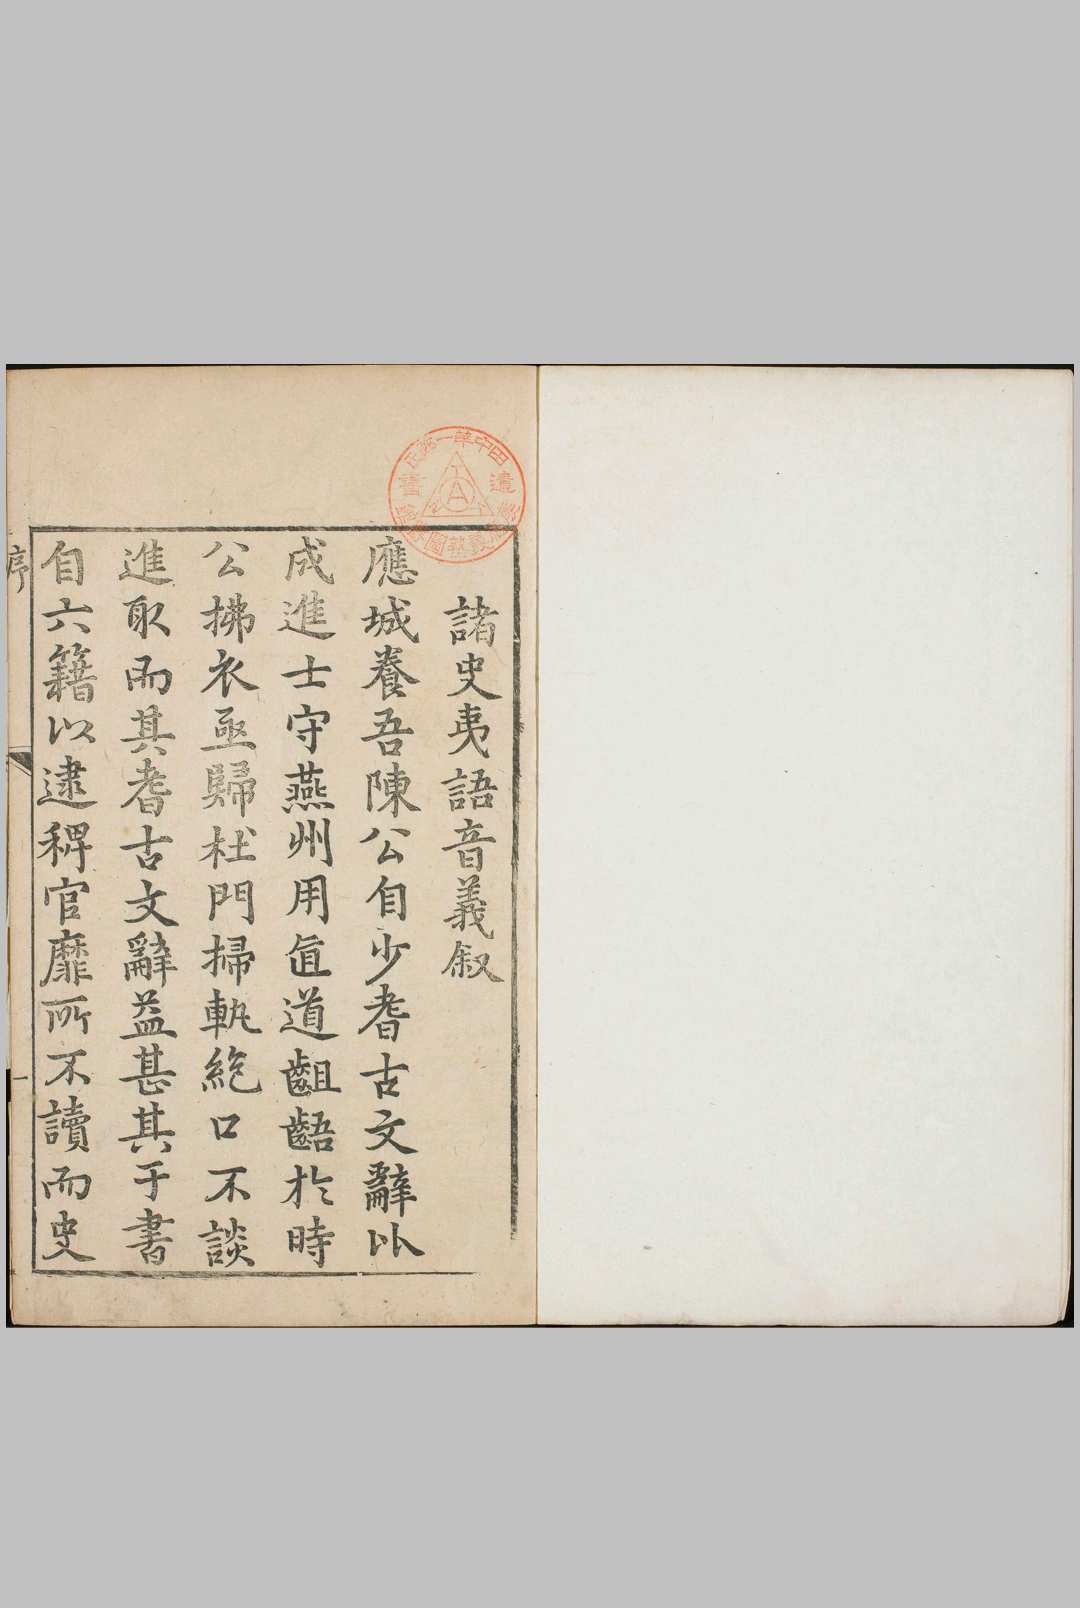 諸史夷語音義叙
應城養吾陳公自少耆古文辭以
成進士守燕州用直道齟齬於時
公拂衣亟歸杜門掃軌絶口不談
進取而其耆古文辭益甚其于書
自六籍以逮稗官靡所不讀而史
序
一
田中華一郎氏
遺書